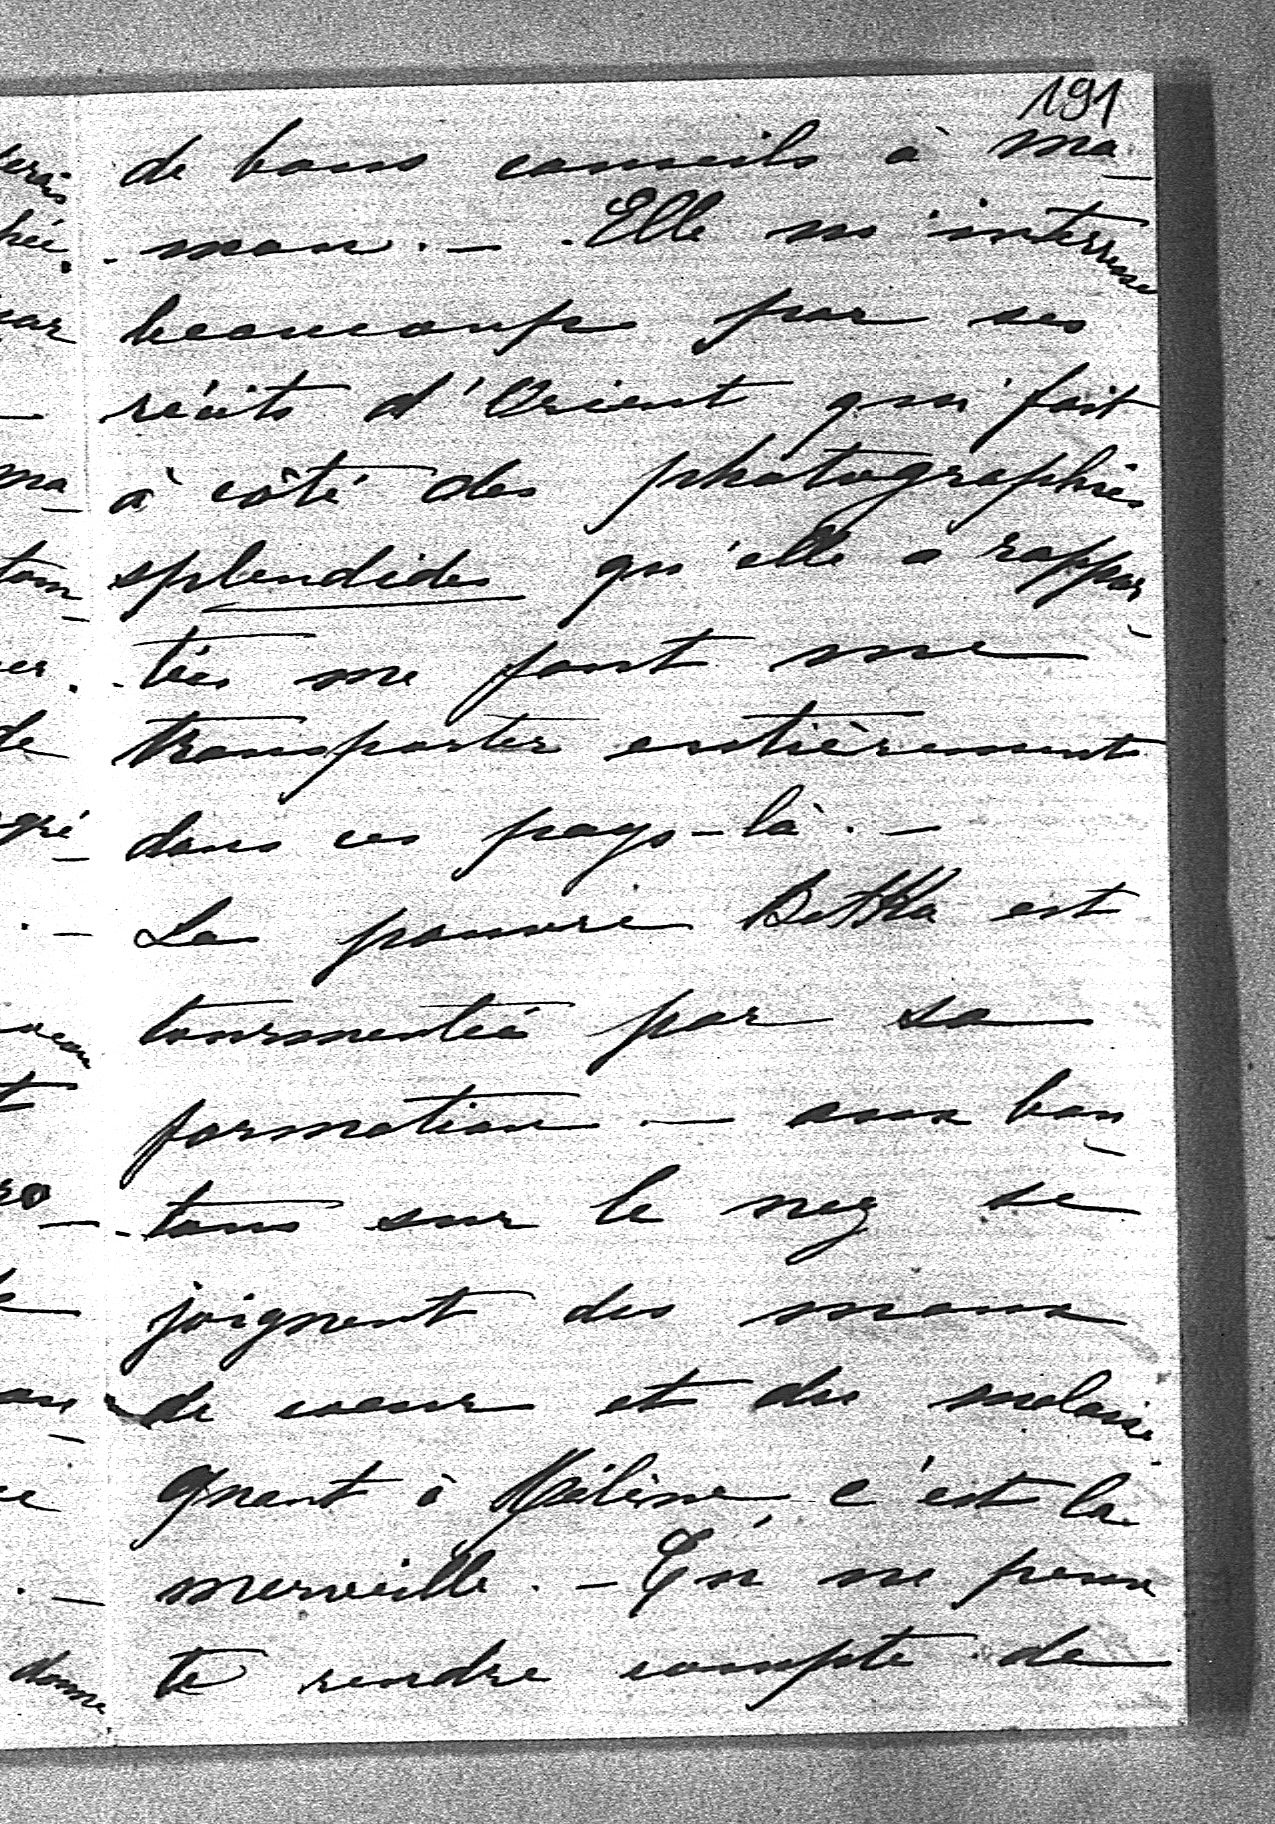 191
de bons conseils à ma-
-man. - Elle m'interresse
beaucoup par ses
récits d'Orient qui fait
à côté des photographies
splendides qu'elle a rappor-
-tées me font me
transporter entièrement
dans ces pays-là. -
La pauvre Betka est
tourmentée par sa
formation - aux bou-
-tons sur le nez se
joignent des maux
de coeur et des malaise
quant à Miline c'est la
merveille. - Tu ne peux
te rendre compte de